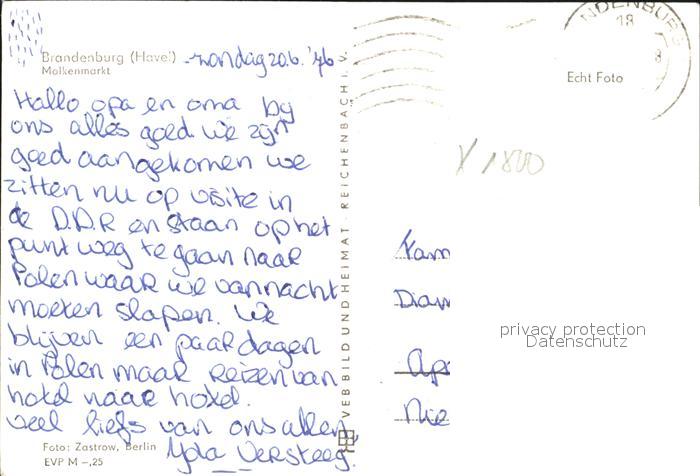 Brandenburg (Havel)
Molkenmarkt
- zondag 20.6. '76
Hallo opa en oma by
ons alles goed we zijn
goed aangekomen we
zitten nu op visite in
de D.D.R en staan op het
punt weg te gaan naar
Polen waar we vannacht
moeten slapen. We
blijven een paar dagen
in Polen maar reizen van
hotel naar hotel.
veel liefs van ons allen,
Versteeg.
Foto: Zastrow, Berlin
EVP M -,25
VEB BILD UND HEIMAT · REICHENBACH i. V.
NDENBURG
18
8
Echt Foto
V 1800
Fam
Dian
Ap
Nie
privacy protection
Datenschutz